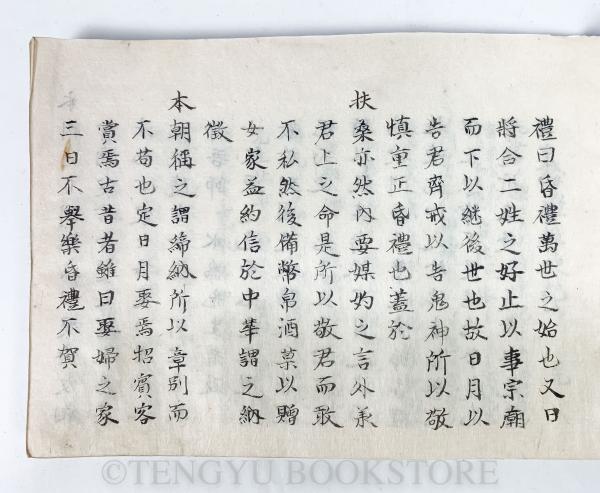 禮曰昏禮萬世之始也又曰
將合二姓之好止以事宗廟
而下以継後世也故日月以
告君齊戒以告鬼神所以敬
慎重正昏禮也蓋於
扶桑亦然内要媒妁之言外承
君上之命是所以敬君而敢
不私然後備幣帛酒菓以贈
女家益約信於中華謂之納
徵
本朝稱之謂締納所以章別而
不苟也定日月娶焉招賓客
賞焉古昔者雖曰娶婦之家
三日不擧樂昏禮不賀
©TENGYU BOOKSTORE